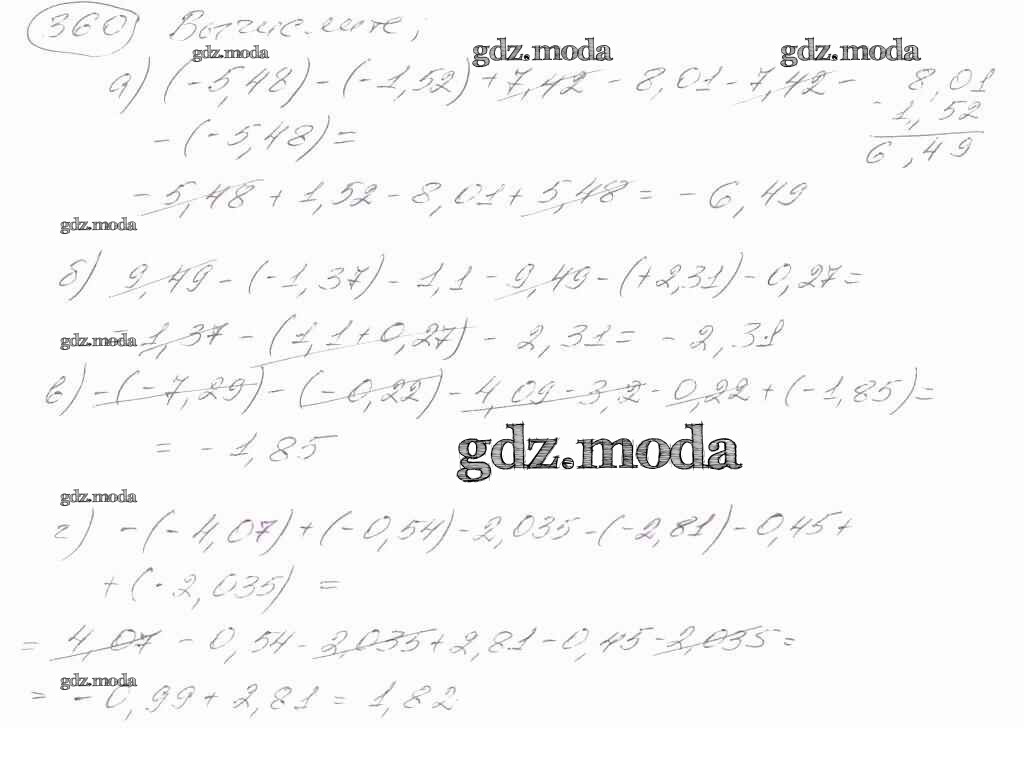 360 Вычислите;
gdz.moda gdz.moda gdz.moda
а) (-5,48) - (-1,52) + 7,42 - 8,01 - 7,42 - 8,01
- 1,52
- (-5,48) = 6,49
- 5,48 + 1,52 - 8,01 + 5,48 = - 6,49
gdz.moda
б) 9,49 - (-1,37) - 1,1 - 9,49 - (+2,31) - 0,27 =
gdz.moda = 1,37 - (1,1 + 0,27) - 2,31 = - 2,31
в) - (-7,29) - (-0,22) - 4,09 - 3,2 - 0,22 + (-1,85) =
= - 1,85
gdz.moda
gdz.moda
г) - (-4,07) + (-0,54) - 2,035 - (-2,81) - 0,45 +
+ (-2,035) =
= 4,07 - 0,54 - 2,035 + 2,81 - 0,45 - 2,035 =
gdz.moda
= - 0,99 + 2,81 = 1,82